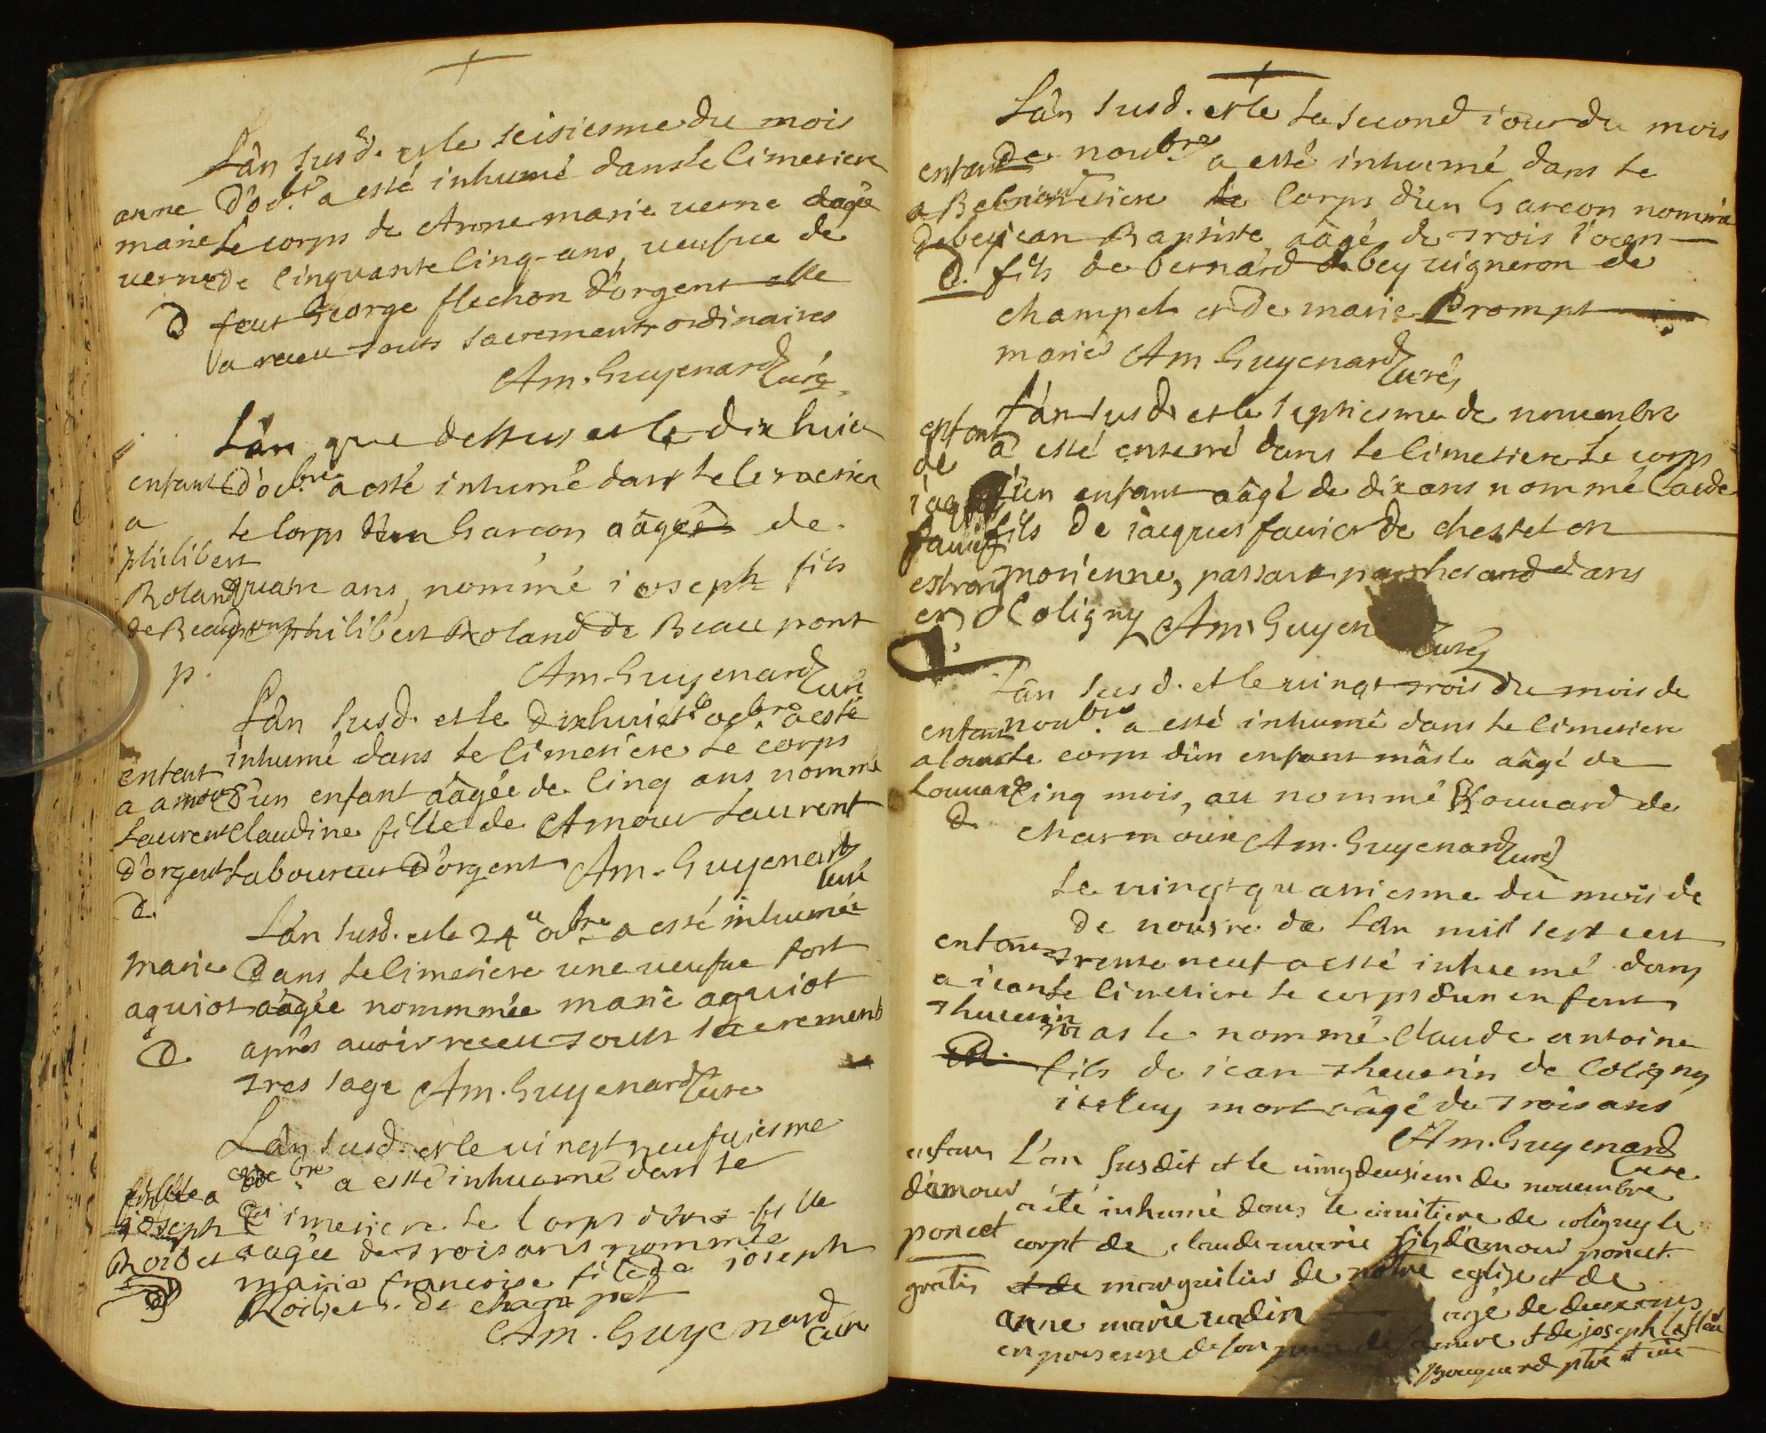 Lân susd. et le seisiesme du mois
d'oct.bre a esté inhumé dans le Cimetiere
anne
marie
verne
le corps de Anne marie verne aagée
de Cinquante Cinq-ans, veufve de
feut George flechon d'orgent elle
a receu touts sacrements ordinaires
D
Am. Guyenard Curé
Lân que dessus et le dix huict
d'oct.bre a esté inhumé dans le Cimetiere
le Corps d'un Garcon aâgé de
quatre ans, nommé ioseph fils
philibert Roland de Beaupont
enfant
a
philibert
Roland
de Beaupont
p.
Am. Guyenard Curé
Lân susd. et le dixhuict oct.bre a esté
inhumé dans le Cimetiere le corps
d'un enfant aâgée de Cinq ans nommé
Claudine fille de Amour Laurent
Laboureur d'orgent Am. Guyenard Curé
enfant
a amour
Laurent
d'orgent
D.
Lân susd. et le 24e oct.bre a esté inhumée
dans le Cimetiere une veufve fort
aâgée nommmée marie aguiot
aprés avoir receu touts sacrements
tres sage Am. Guyenard Curé
marie
aguiot
D.
Lân susd. et le vingt neufviesme
oct.bre a esté inhumé dans le
Cimetiere le Corps d'une fille
aagée de trois ans nommée
marie francoise fille de ioseph
Roibet de champel
fille a
ioseph
Roibet
Am. Guyenard Curé
Lân susd. et le second iour du mois
de nov.bre a esté inhumé dans le
Cimetiere le Corps d'un Garcon nommé
iean Baptiste aâgé de trois iours
fils de bernard debey vigneron de
champel et de marie Prompt
mariés Am. Guyenard Curé
enfant
a Bernard
debey
D.
Lân susd. et le septiesme de novembre
a esté enterré dans le Cimetiere le corps
d'un enfant aâgé de dix ans nommé Claude
fils de iacques favier de chestel en
morienne, passant
Coligny Am. Guyen Curé
enfant
de
favier
estranger
D.
Lân susd. et le vingt trois du mois de
nov.bre a esté inhumé dans le Cimetiere
le corps d'un enfant mâsle aâgé de
Cinq mois, au nommé Rouuard de
charmoux Am. Guyenard Curé
enfant
D.
Le vingt quatriesme du mois de
de novbre de Lân mil sept cent
trente neuf a esté inhumé dans
le Cimetiere le corps d'un enfant
masle nommé Claude antoine
fils de iean thevenin de Coligny
iceluy mort aâgé de trois ans
enfant
a iean
thevenin
D.
Am. Guyenard Curé
L'an susdit et le vingdeusiem de novembre
a été inhumé dans le cimitiere de coligny le
corpt de claudemarie fils d'amour poncet
et de marguilier de nôtre eglise et de
anne marie vadin agé de deux ans
en presense de son pere et de joseph la fleur
Bouquerd ptre et curé
enfan
d'amour
poncet
gratis